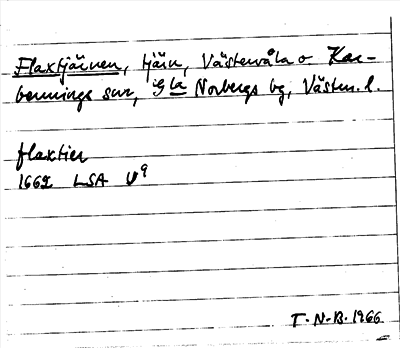 Flaxtjärnen, tjärn, Västervåla o. Kar-
bennings snr, Gla Norbergs bg, Västm. l.
flaxtien
1662 LSA U9
T. N-B. 1966